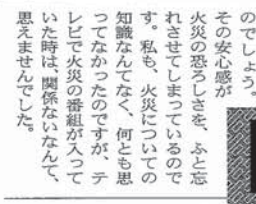 のでしょう。
その安心感が
火災の恐ろしさを、ふと忘
れさせてしまっているので
す。私も、火災についての
知識なんてなく、何とも思
ってなかったのですが、テ
レビで火災の番組が入って
いた時は、関係ないなんて、
思えませんでした。